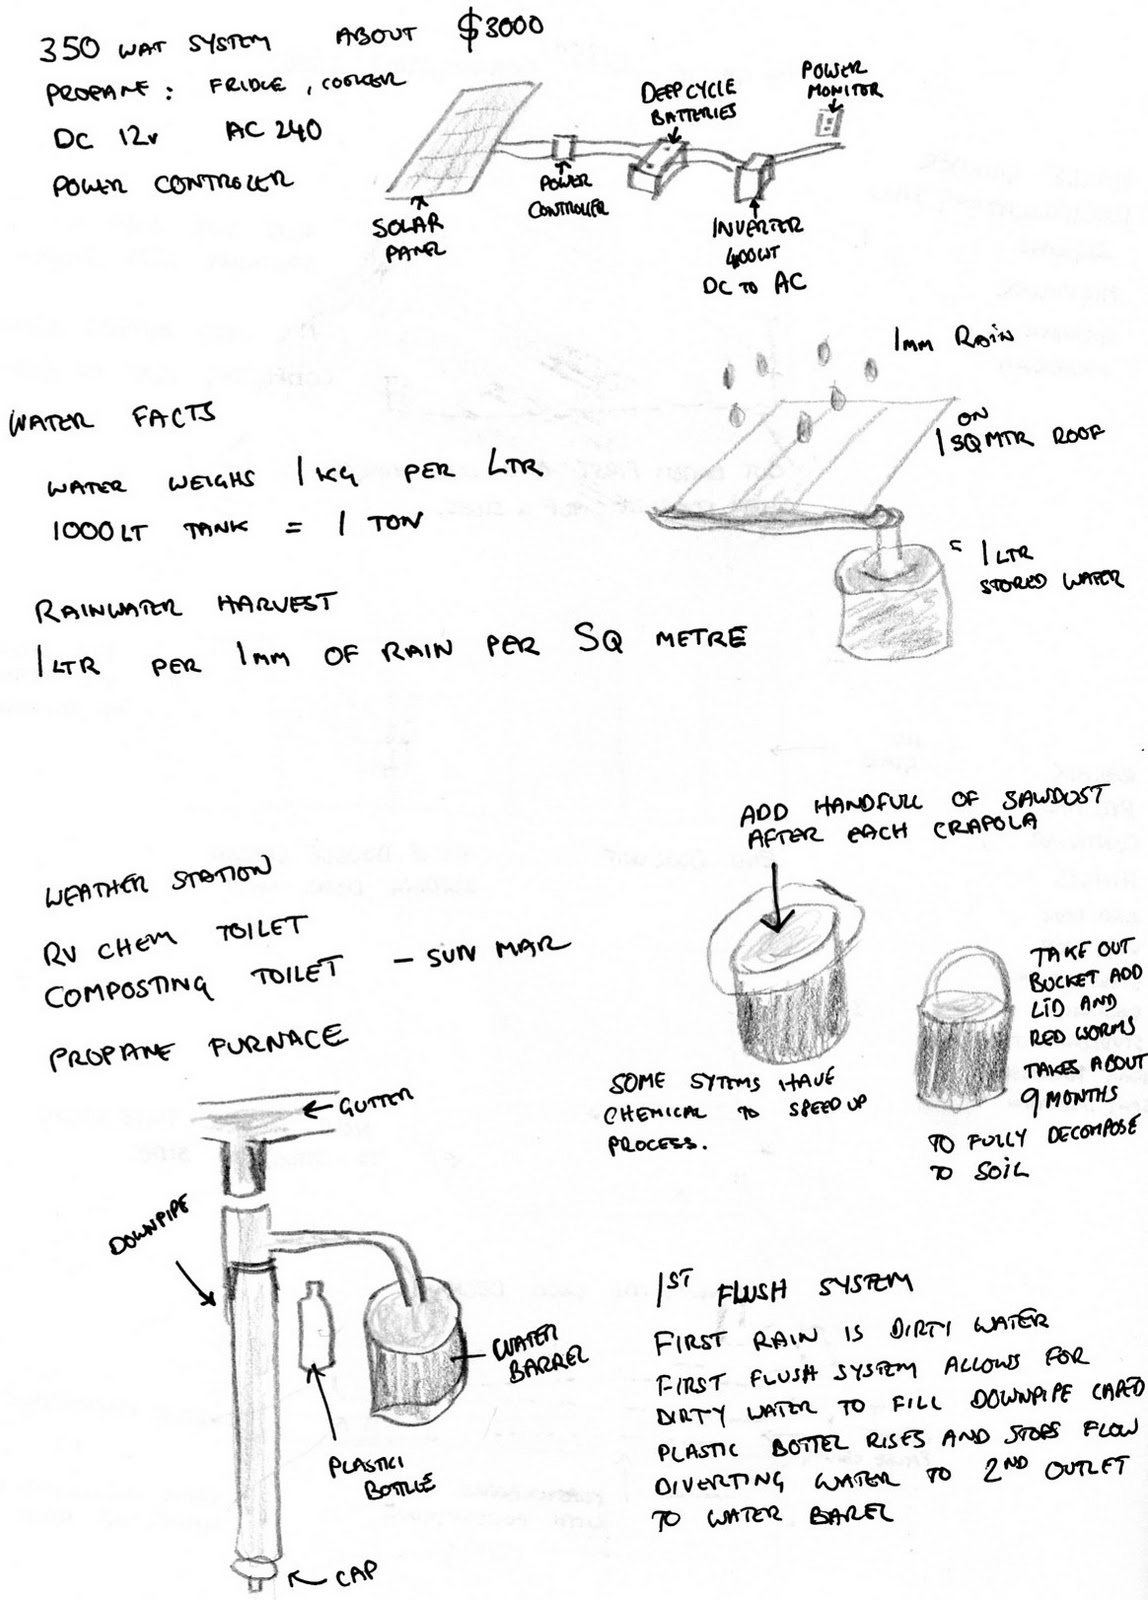 350 WAT SYSTEM ABOUT $3000
PROPANE: FRIDGE, COOKER
DC 12V AC 240
POWER CONTROLER
SOLAR
PANEL
POWER
CONTROLLER
DEEP CYCLE
BATTERIES
INVERTER
400WT
DC TO AC
POWER
MONITOR
1MM RAIN
ON
1 SQ MTR ROOF
= 1 LTR
STORED WATER
WATER FACTS
WATER WEIGHS 1 KG PER LTR
1000LT TANK = 1 TON
RAINWATER HARVEST
1 LTR PER 1MM OF RAIN PER SQ METRE
ADD HANDFULL OF SAWDUST
AFTER EACH CRAPOLA
WEATHER STATION
RV CHEM TOILET
COMPOSTING TOILET - SUN MAR
PROPANE FURNACE
SOME SYTEMS HAVE
CHEMICAL TO SPEED UP
PROCESS.
TAKE OUT
BUCKET ADD
LID AND
RED WORMS
TAKES ABOUT
9 MONTHS
TO FULLY DECOMPOSE
TO SOIL
GUTTER
DOWNPIPE
WATER
BARREL
PLASTICI
BOTTLE
CAP
1ST FLUSH SYSTEM
FIRST RAIN IS DIRTY WATER
FIRST FLUSH SYSTEM ALLOWS FOR
DIRTY WATER TO FILL DOWNPIPE CAPED
PLASTIC BOTTEL RISES AND STOPS FLOW
DIVERTING WATER TO 2ND OUTLET
TO WATER BAREL